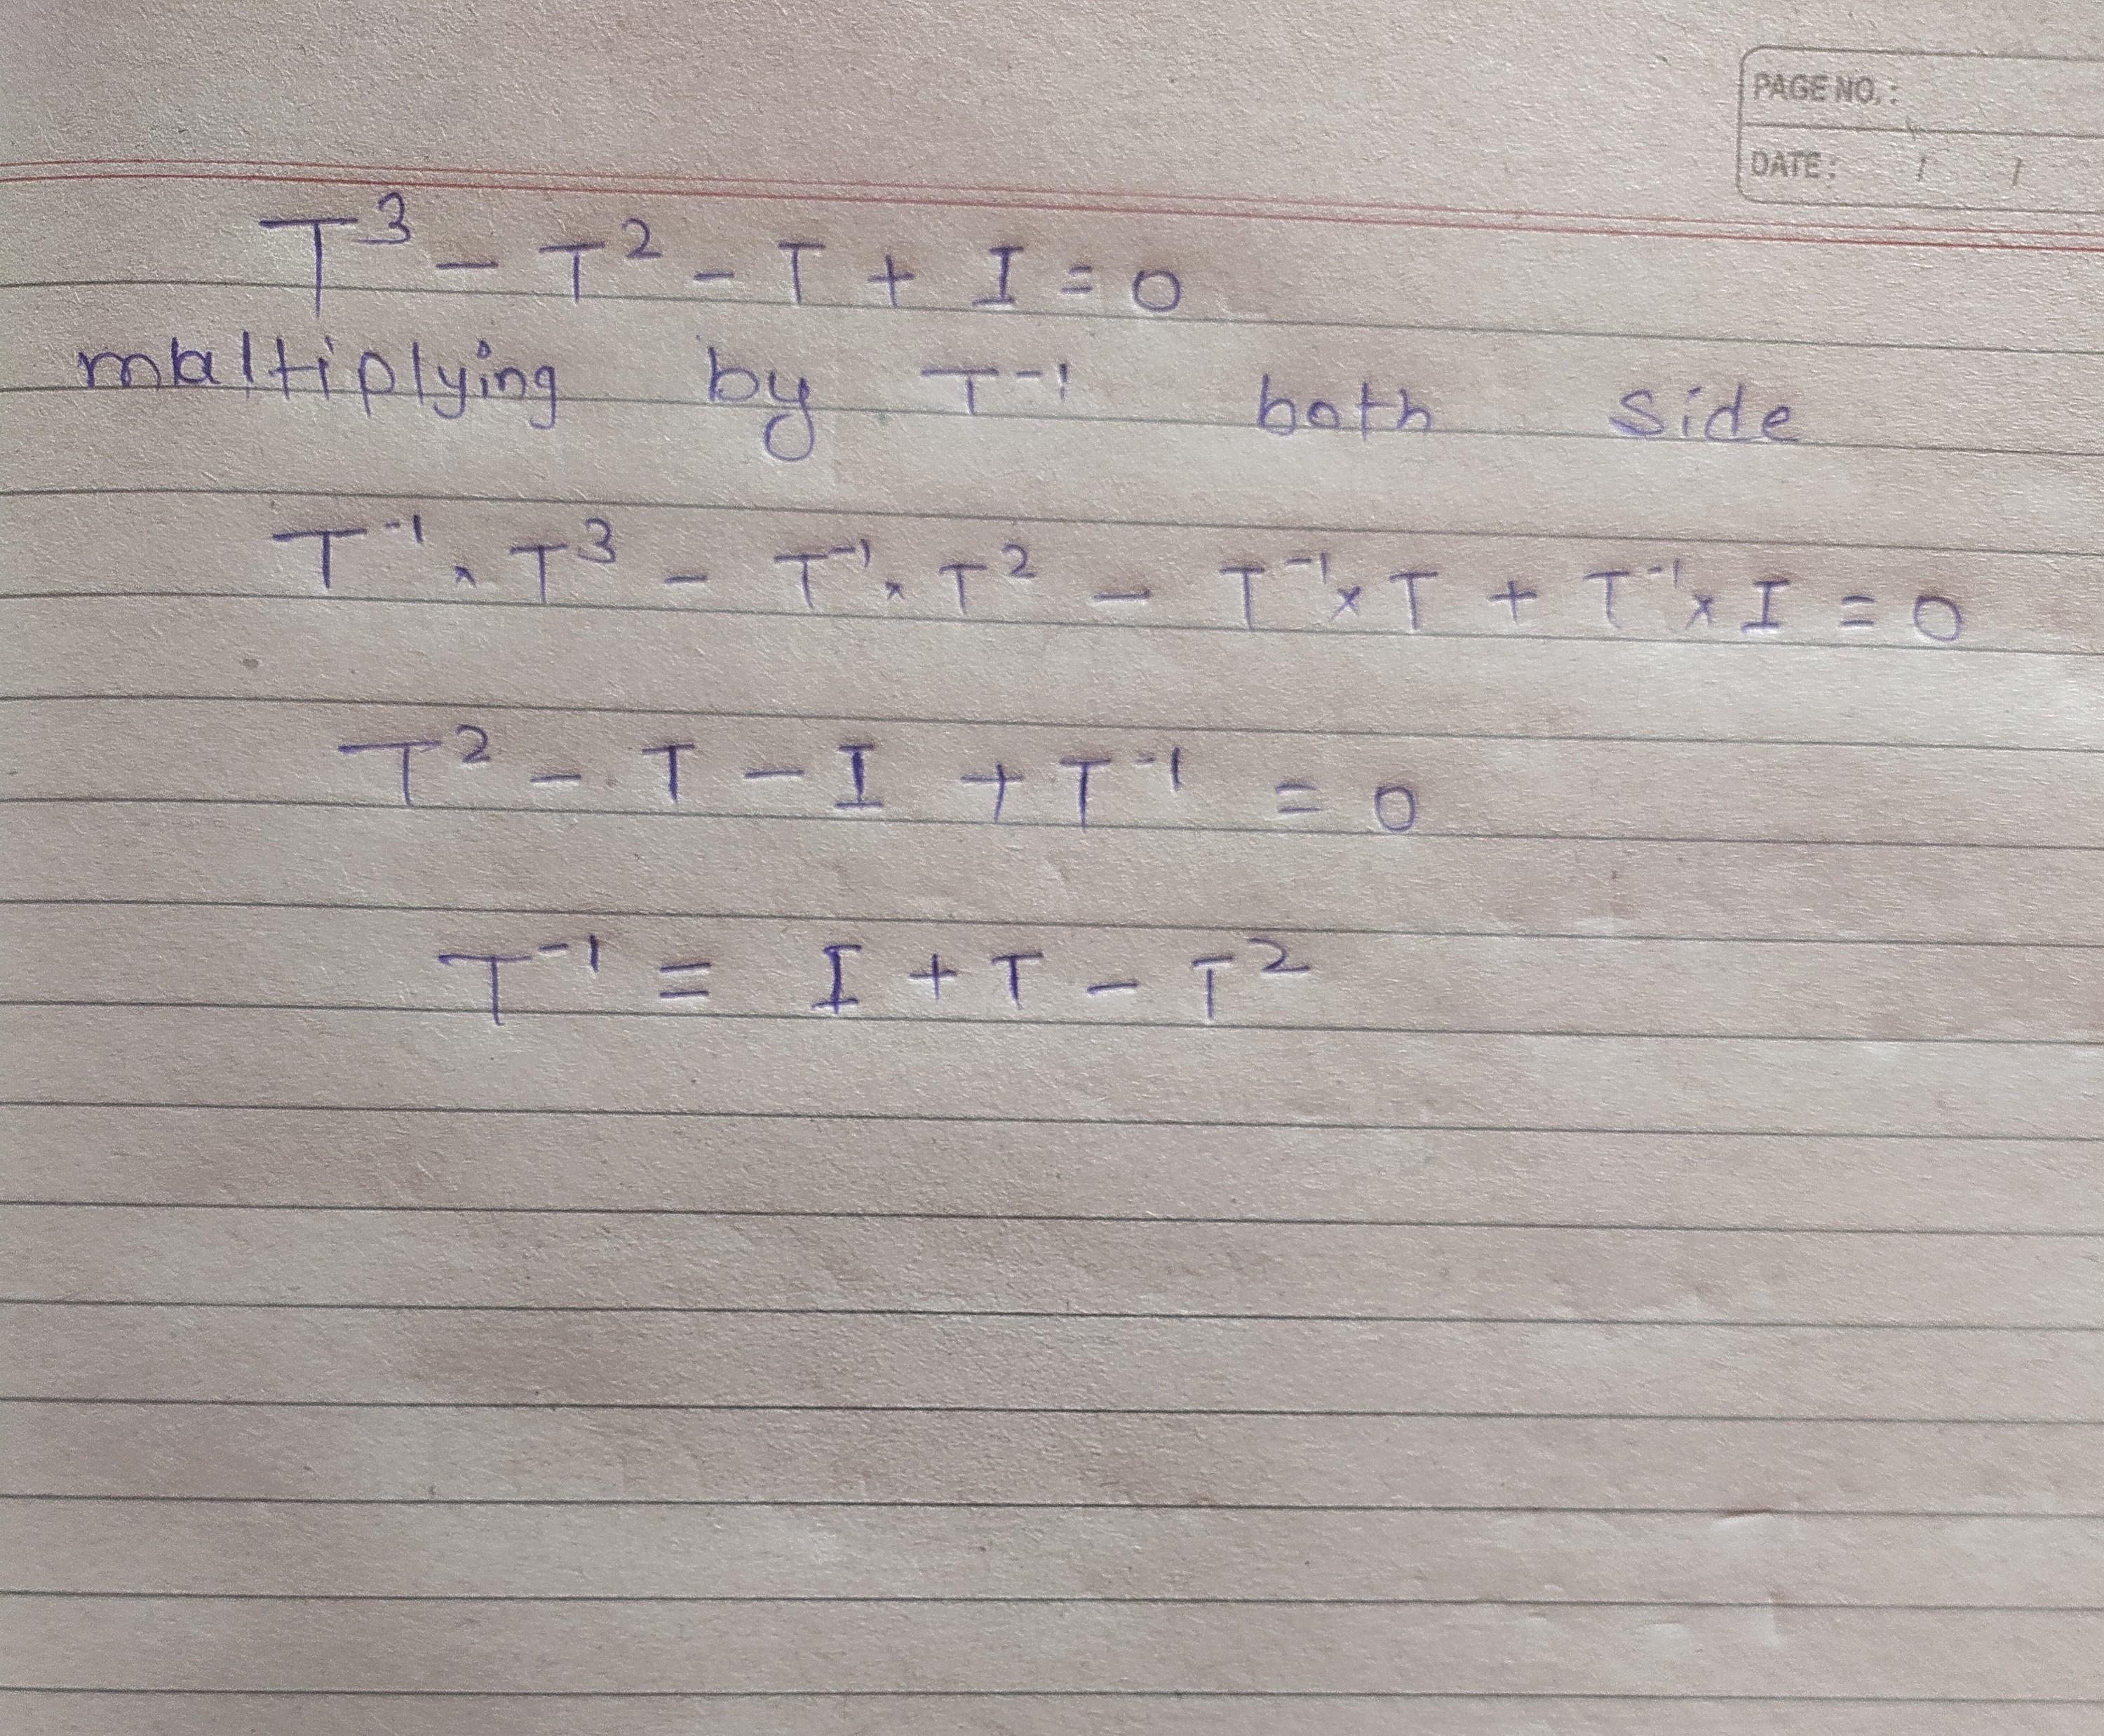 PAGE NO. :
DATE : / /
T³ - T² - T + I = 0
multiplying by T⁻¹ both side
T⁻¹ × T³ - T⁻¹ × T² - T⁻¹ × T + T⁻¹ × I = 0
T² - T - I + T⁻¹ = 0
T⁻¹ = I + T - T²